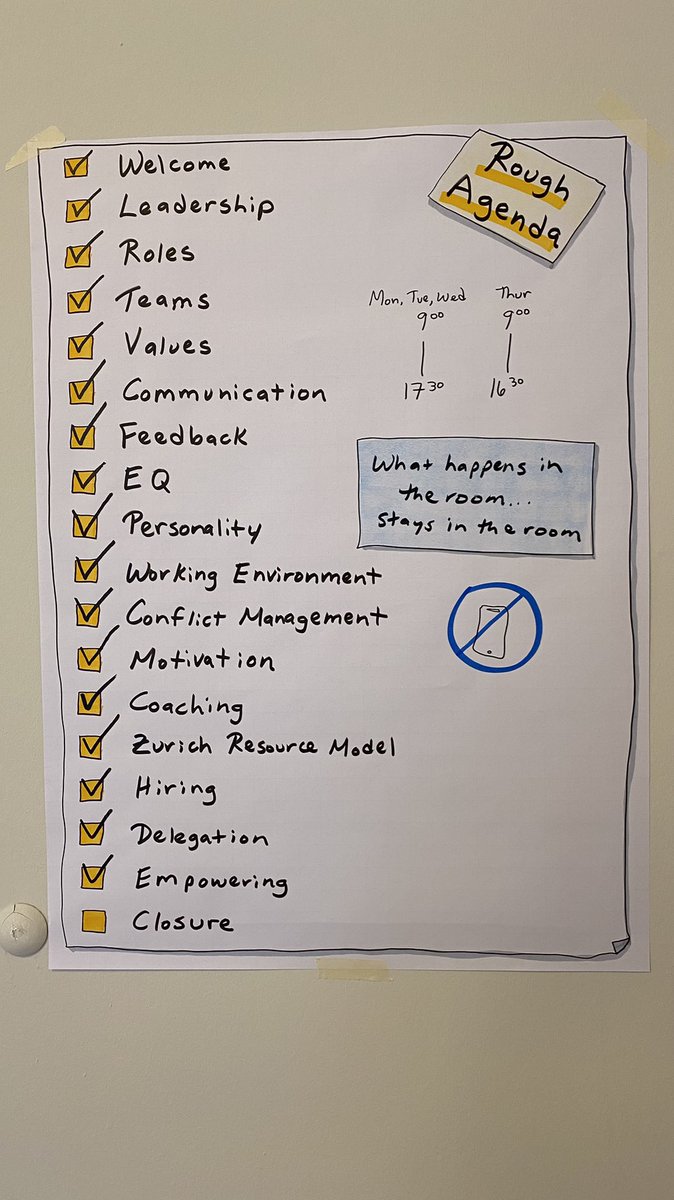 Rough
Agenda
Welcome
Leadership
Roles
Teams
Values
Communication
Feedback
EQ
Personality
Working Environment
Conflict Management
Motivation
Coaching
Zurich Resource Model
Hiring
Delegation
Empowering
Closure
Mon, Tue, Wed
9⁰⁰
17³⁰
Thur
9⁰⁰
16³⁰
What happens in
the room...
stays in the room